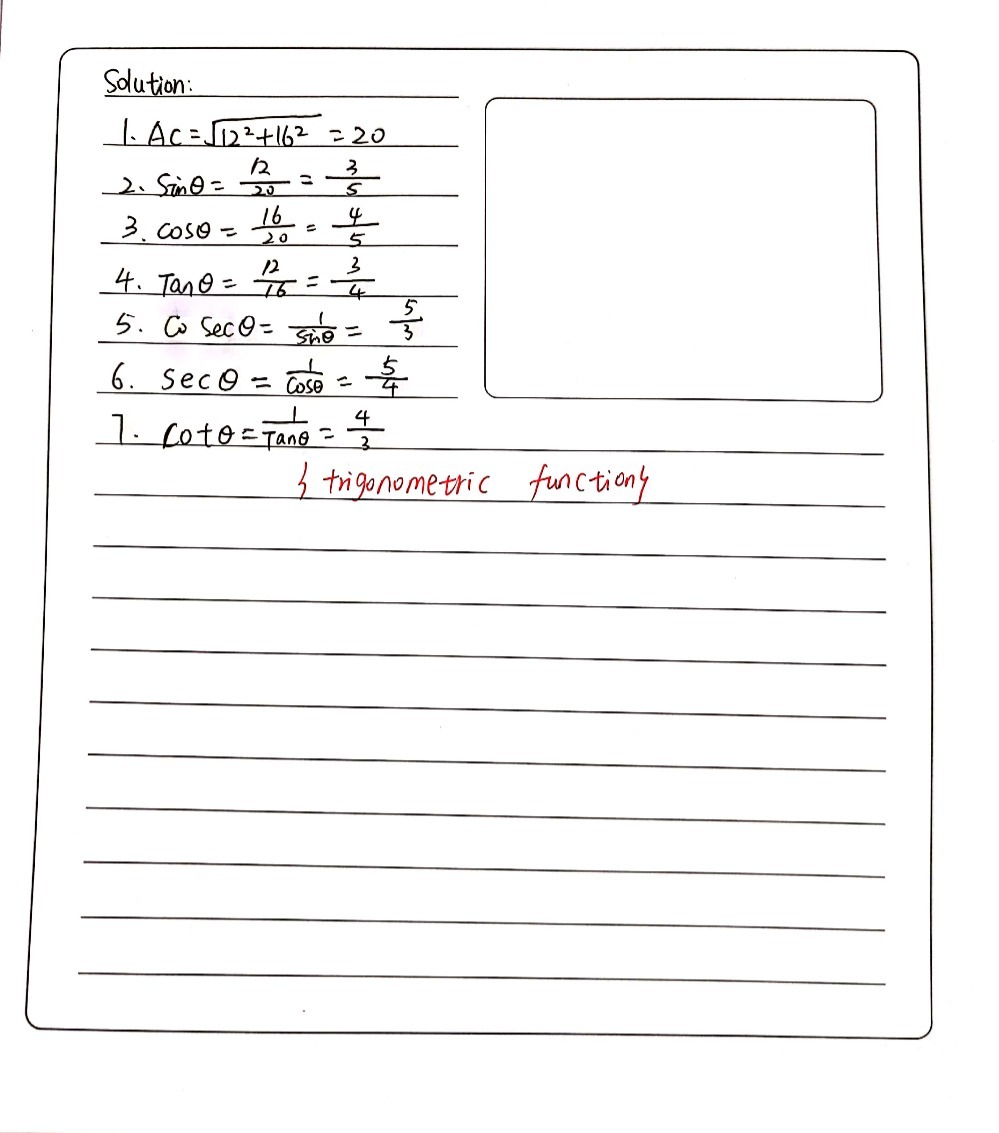 Solution:
1. AC = √12²+16² = 20
2. Sinθ = 12/20 = 3/5
3. cosθ = 16/20 = 4/5
4. Tanθ = 12/16 = 3/4
5. Co Secθ = 1/Sinθ = 5/3
6. Secθ = 1/Cosθ = 5/4
7. Cotθ = 1/Tanθ = 4/3
{ trigonometric function}